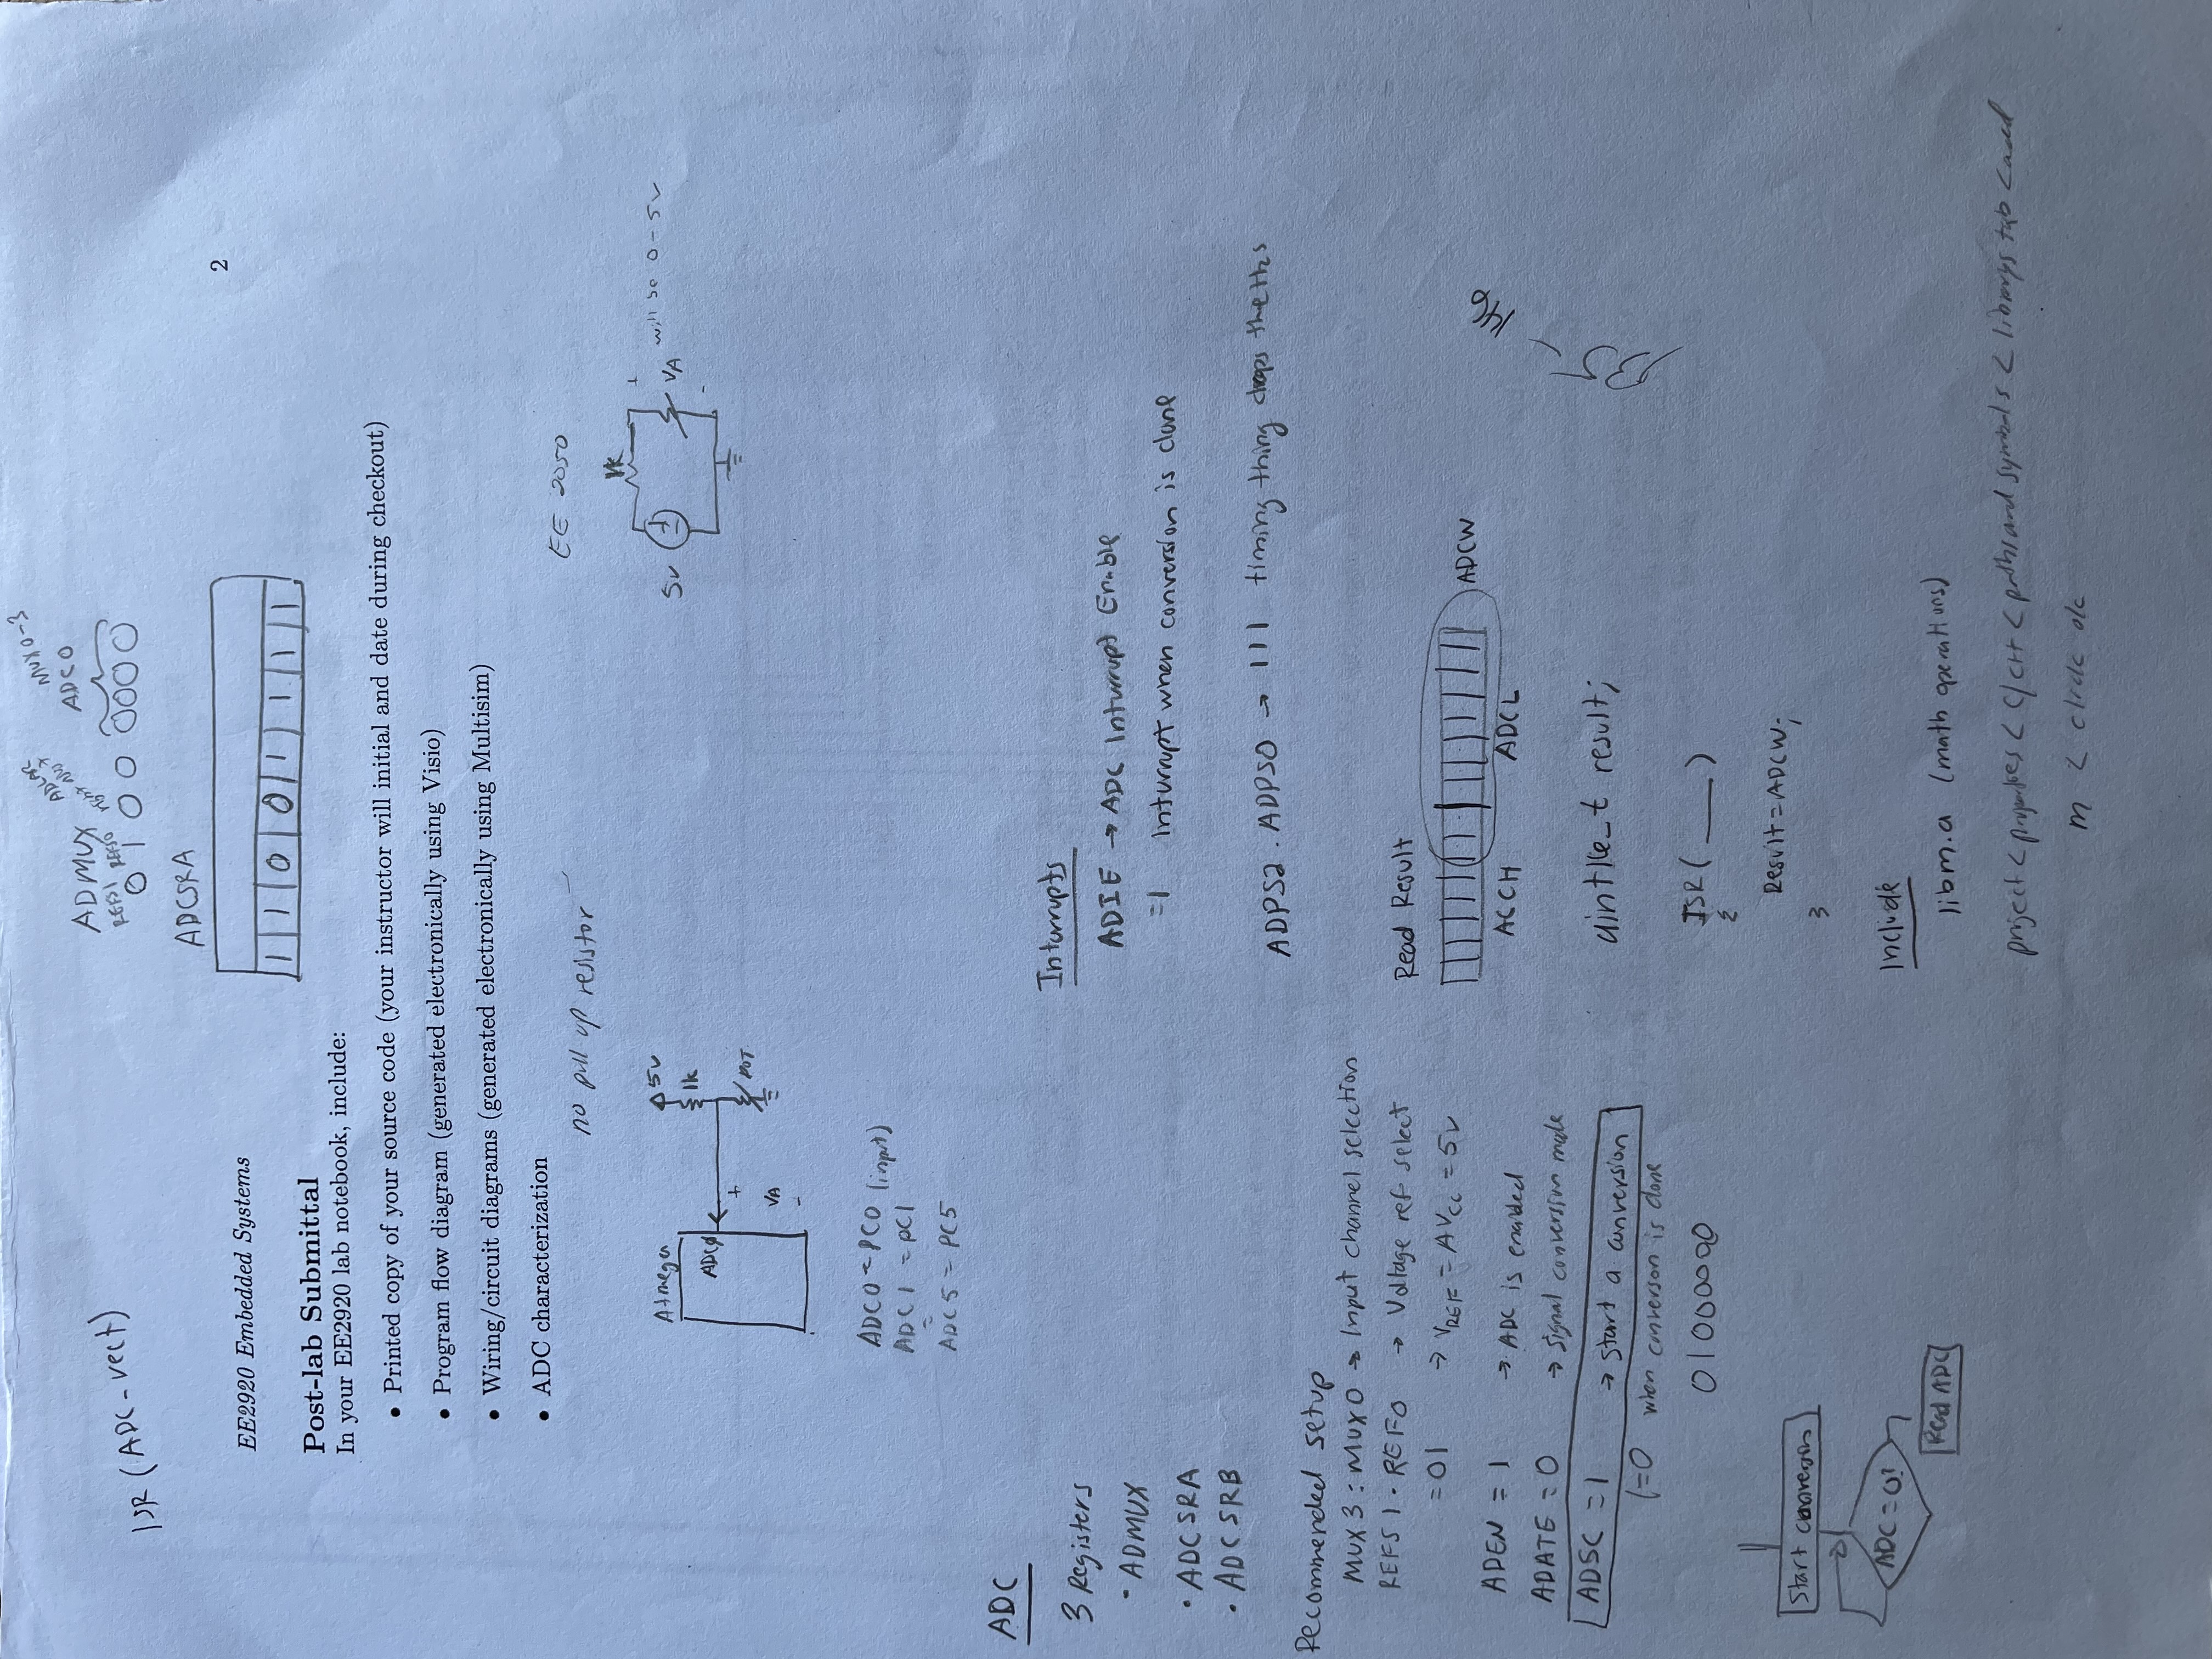 ISR (ADC-vect)
ADMUX
ADLAR
MUX0-3
ADC0
REFS1 REFS0 right
0 1 0 0 0000
ADCSRA
1 1 0 0 1 1 1 1
2
EE2920 Embedded Systems
Post-lab Submittal
In your EE2920 lab notebook, include:
• Printed copy of your source code (your instructor will initial and date during checkout)
• Program flow diagram (generated electronically using Visio)
• Wiring/circuit diagrams (generated electronically using Multisim)
• ADC characterization
no pull up resistor
EE 2050
Atmega
ADC0
5v
1k
+
VA
-
POT
1k
5v
+
VA
-
will be 0-5v
ADC0 = PC0 (input)
ADC1 = PC1
=
ADC5 = PC5
ADC
3 Registers
• ADMUX
• ADCSRA
• ADCSRB
Recommended setup
MUX3 : MUX0 → Input channel selection
REFS1 . REF0 → Voltage ref select
=01 → VREF = AVCC = 5v
ADEN = 1 → ADC is enabled
ADATE = 0 → signal conversion mode
ADSC = 1 → start a conversion
(=0 when converson is done
01000000
Start conversion
ADC = 0?
Read ADC
Inturrupts
ADIE → ADC Inturrupt Enable
=1 Inturrupt when conversion is done
ADPS2 . ADPS0 → 111 timing thing drops the
Read Result
ADCW
ACCH ADCL
uint16_t result;
ISR( ___ )
{
Result = ADCW;
}
B5 - 146
Include
libm.a (math operations)
project < properties < C/C++ < paths and symbols < librarys tab < add
m < click ok